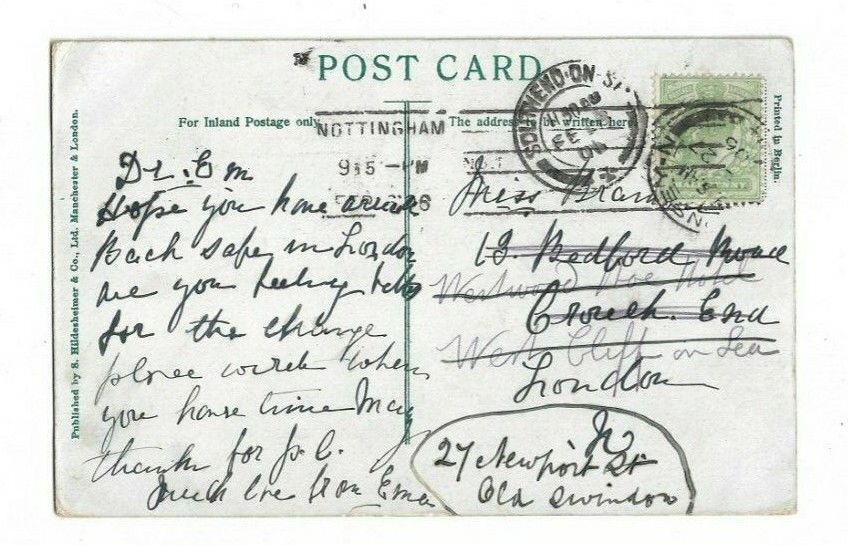 POST CARD
For Inland Postage only
The address to be written here
Printed in Berlin.
Published by S. Hildesheimer & Co., Ltd. Manchester & London.
NOTTINGHAM
9 15 PM
SOUTHEND-ON-S
Dr. Em
Hope you have arrived
Back safely in London
are you feeling better
for the change
please write when
you have time Many
thanks for p.c.
Much love from Ema
Miss
13. Bedford Road
Crouch. End
London
Westwood Hoe Hotel
West Cliff on Sea
27 Newport St
Old Swindon